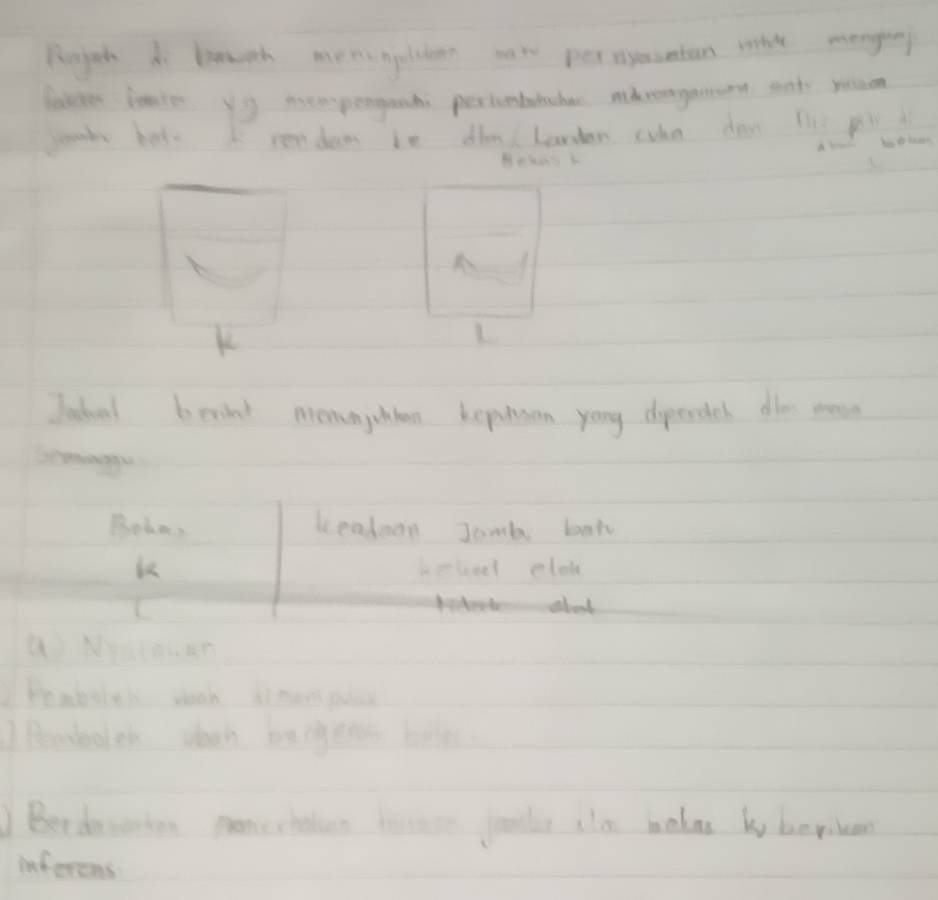 Rajah di bawah menunjukkan satu pernyasatan untuk menguaj
faktor faktor yg mempengaruhi pertumbuhuhan mikroorganisma
jambu batu di rendam ke dlm larutan cuka dan di
Bekas k
K
L
Jadual berikut menunjukkan keputusan yang diperoleh dlm masa
seminggu
Bekas keadaan Jambu batu
K kekal elok
L tidak elok
a) Nyatakan
Pemboleh ubah dimanipulasi
Pemboleh ubah bergerak balas
) Berdasarkan jambu dlm bekas k, berikan
inferens